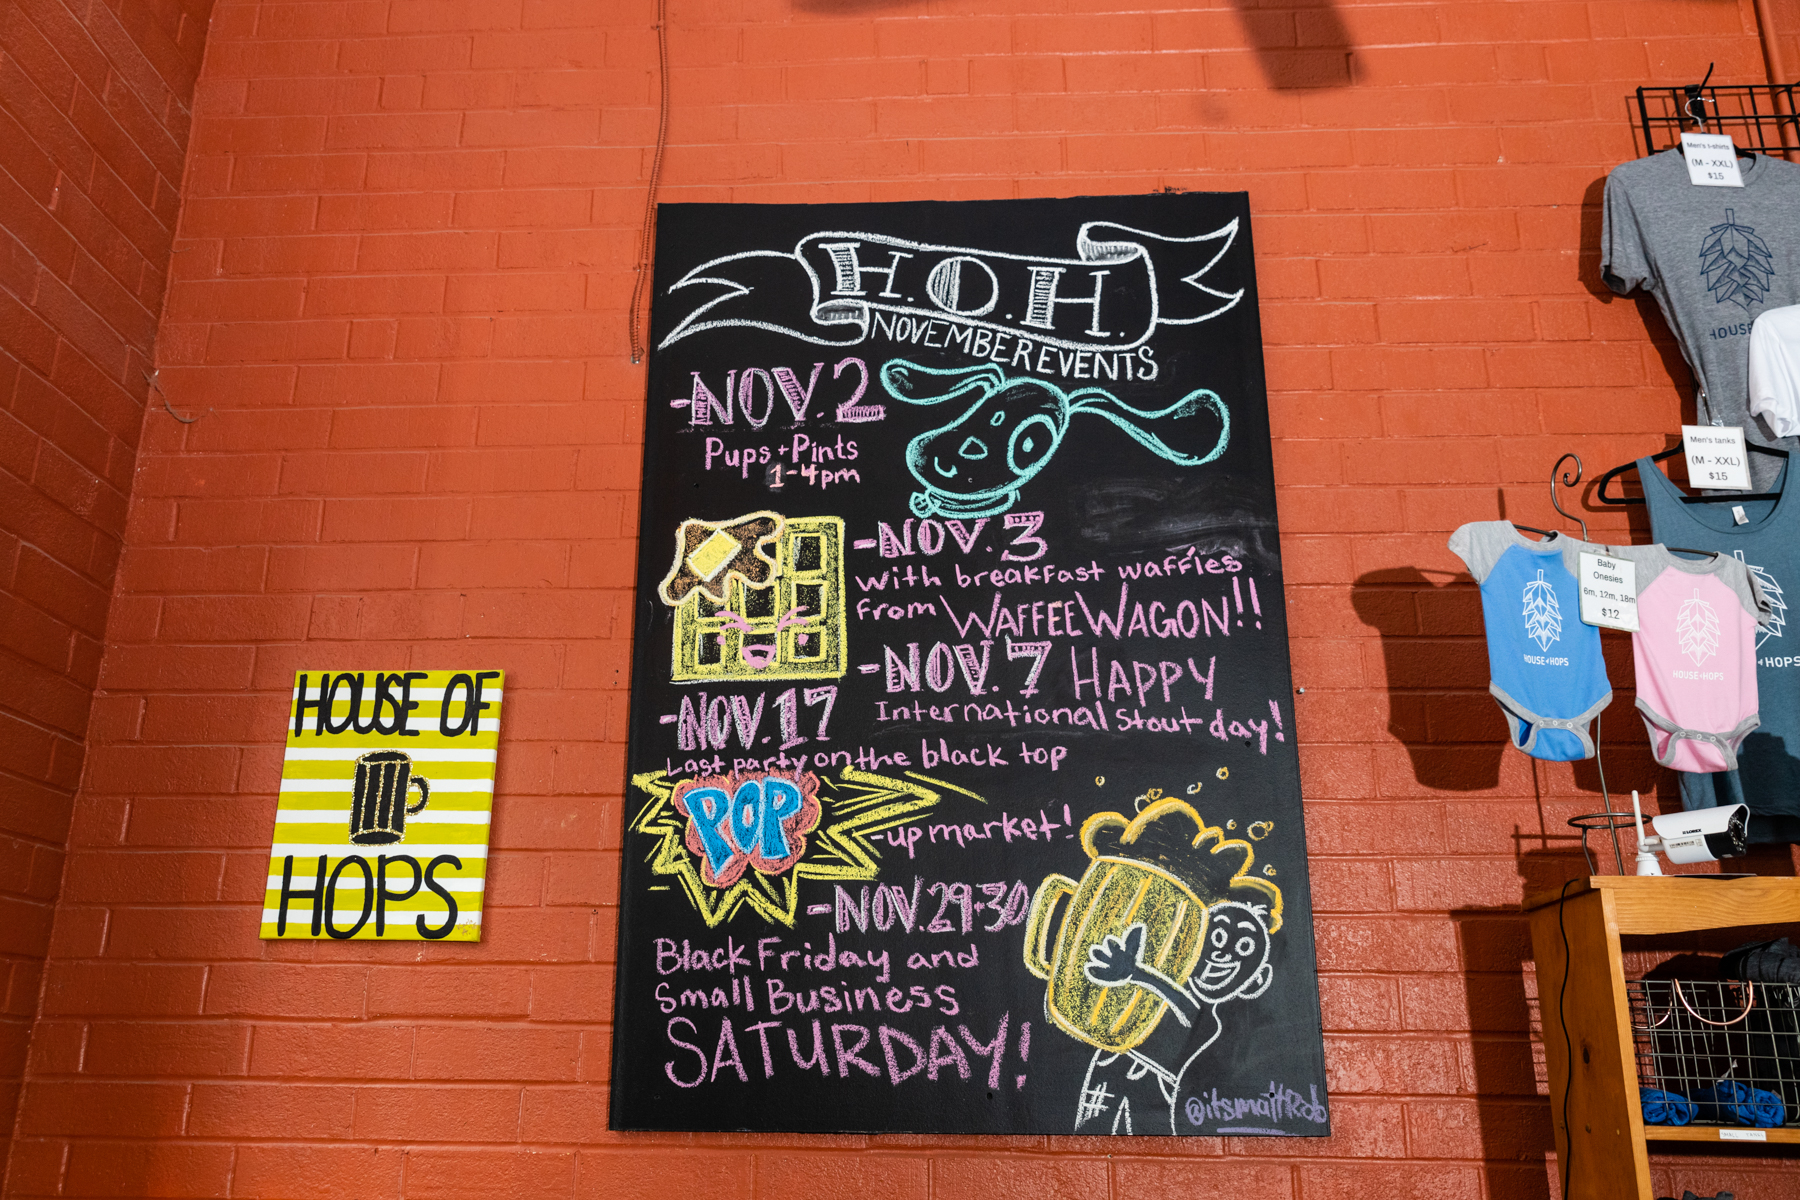 H.O.H.
NOVEMBER EVENTS
-NOV. 2
Pups + Pints
1-4pm
-NOV. 3
With breakfast waffles
from WAFFEE WAGON!!
-NOV. 7 HAPPY
International Stout day!
-NOV. 17
Last party on the black top
POP
-up market!
-NOV. 29+30
Black Friday and
Small Business
SATURDAY!
HOUSE OF
HOPS
Men's t-shirts
(M - XXL)
$15
HOUSE
Men's tanks
(M - XXL)
$15
Baby
Onesies
6m, 12m, 18m
$12
HOUSE of HOPS
HOUSE of HOPS
HOPS
LOREX